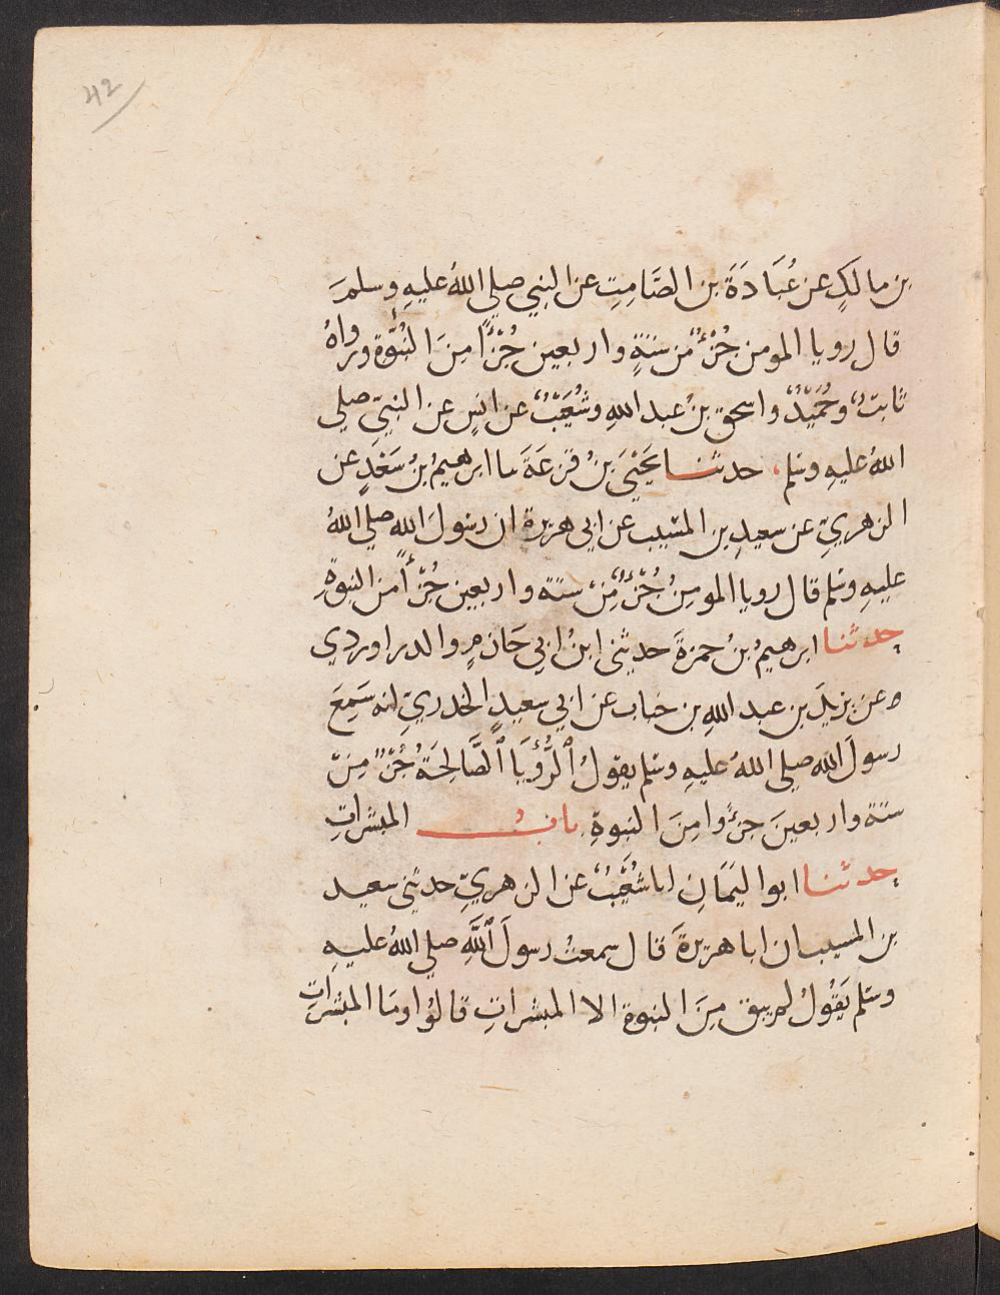 42
بن مالكٍ عن عُبَادَةَ بن الصَّامِتِ عن النبي صلي اللهُ عليهِ وسلمَ
قال رويا المومن جُزْءٌ من ستةٍ واربعين جُزْءًا مِنَ النبُوَّة ورواهُ
ثابتٌ وحُمَيْدٌ واسحق بنُ عبد اللهِ وشُعَيْبٌ عن انسٍ عن النبيِّ صلي
اللهُ عليهِ وسلم، حدثنا يَحْيَى بنُ قزعَةَ نا ابرهيمُ بنُ سَعْدٍ عن
الزهريِّ عن سعيدِ بن المسَيب عن ابي هريرة ان رسُولَ اللهِ صلي اللهُ
عليهِ وسلم قال رويا المومِنُ جُزْءٌ مِنْ ستة واربعين جُزْءًا من النبوةِ
حدثنا ابرهيمُ بنُ حمزةَ حدثني ابنُ ابي حَازمٍ والدراوردي
ه عن يزيدَ بن عبد اللهِ بن خباب عن ابي سعيدٍ الخدريِّ انه سَمِعَ
رسولَ الله صلي اللهُ عليهِ وسلم يقولُ الرُّؤْيَا الصَّالِحَةُ جُزْءٌ مِنْ
ستة واربعينَ جزءًوا مِنَ النبوةِ بابُ المبشراتِ
حدثنا ابوا اليَمَانِ انا شُعَيْبٌ عن الزهريِّ حدثني سعيد
بن المسيب ان ابا هريرةَ قال سمعتُ رسولَ اللَّهِ صلي اللهُ عليهِ
وسلم يَقُولُ لم يبق مِنَ النبوة الا المبشراتِ قالُوا ومَا المبَشراتِ